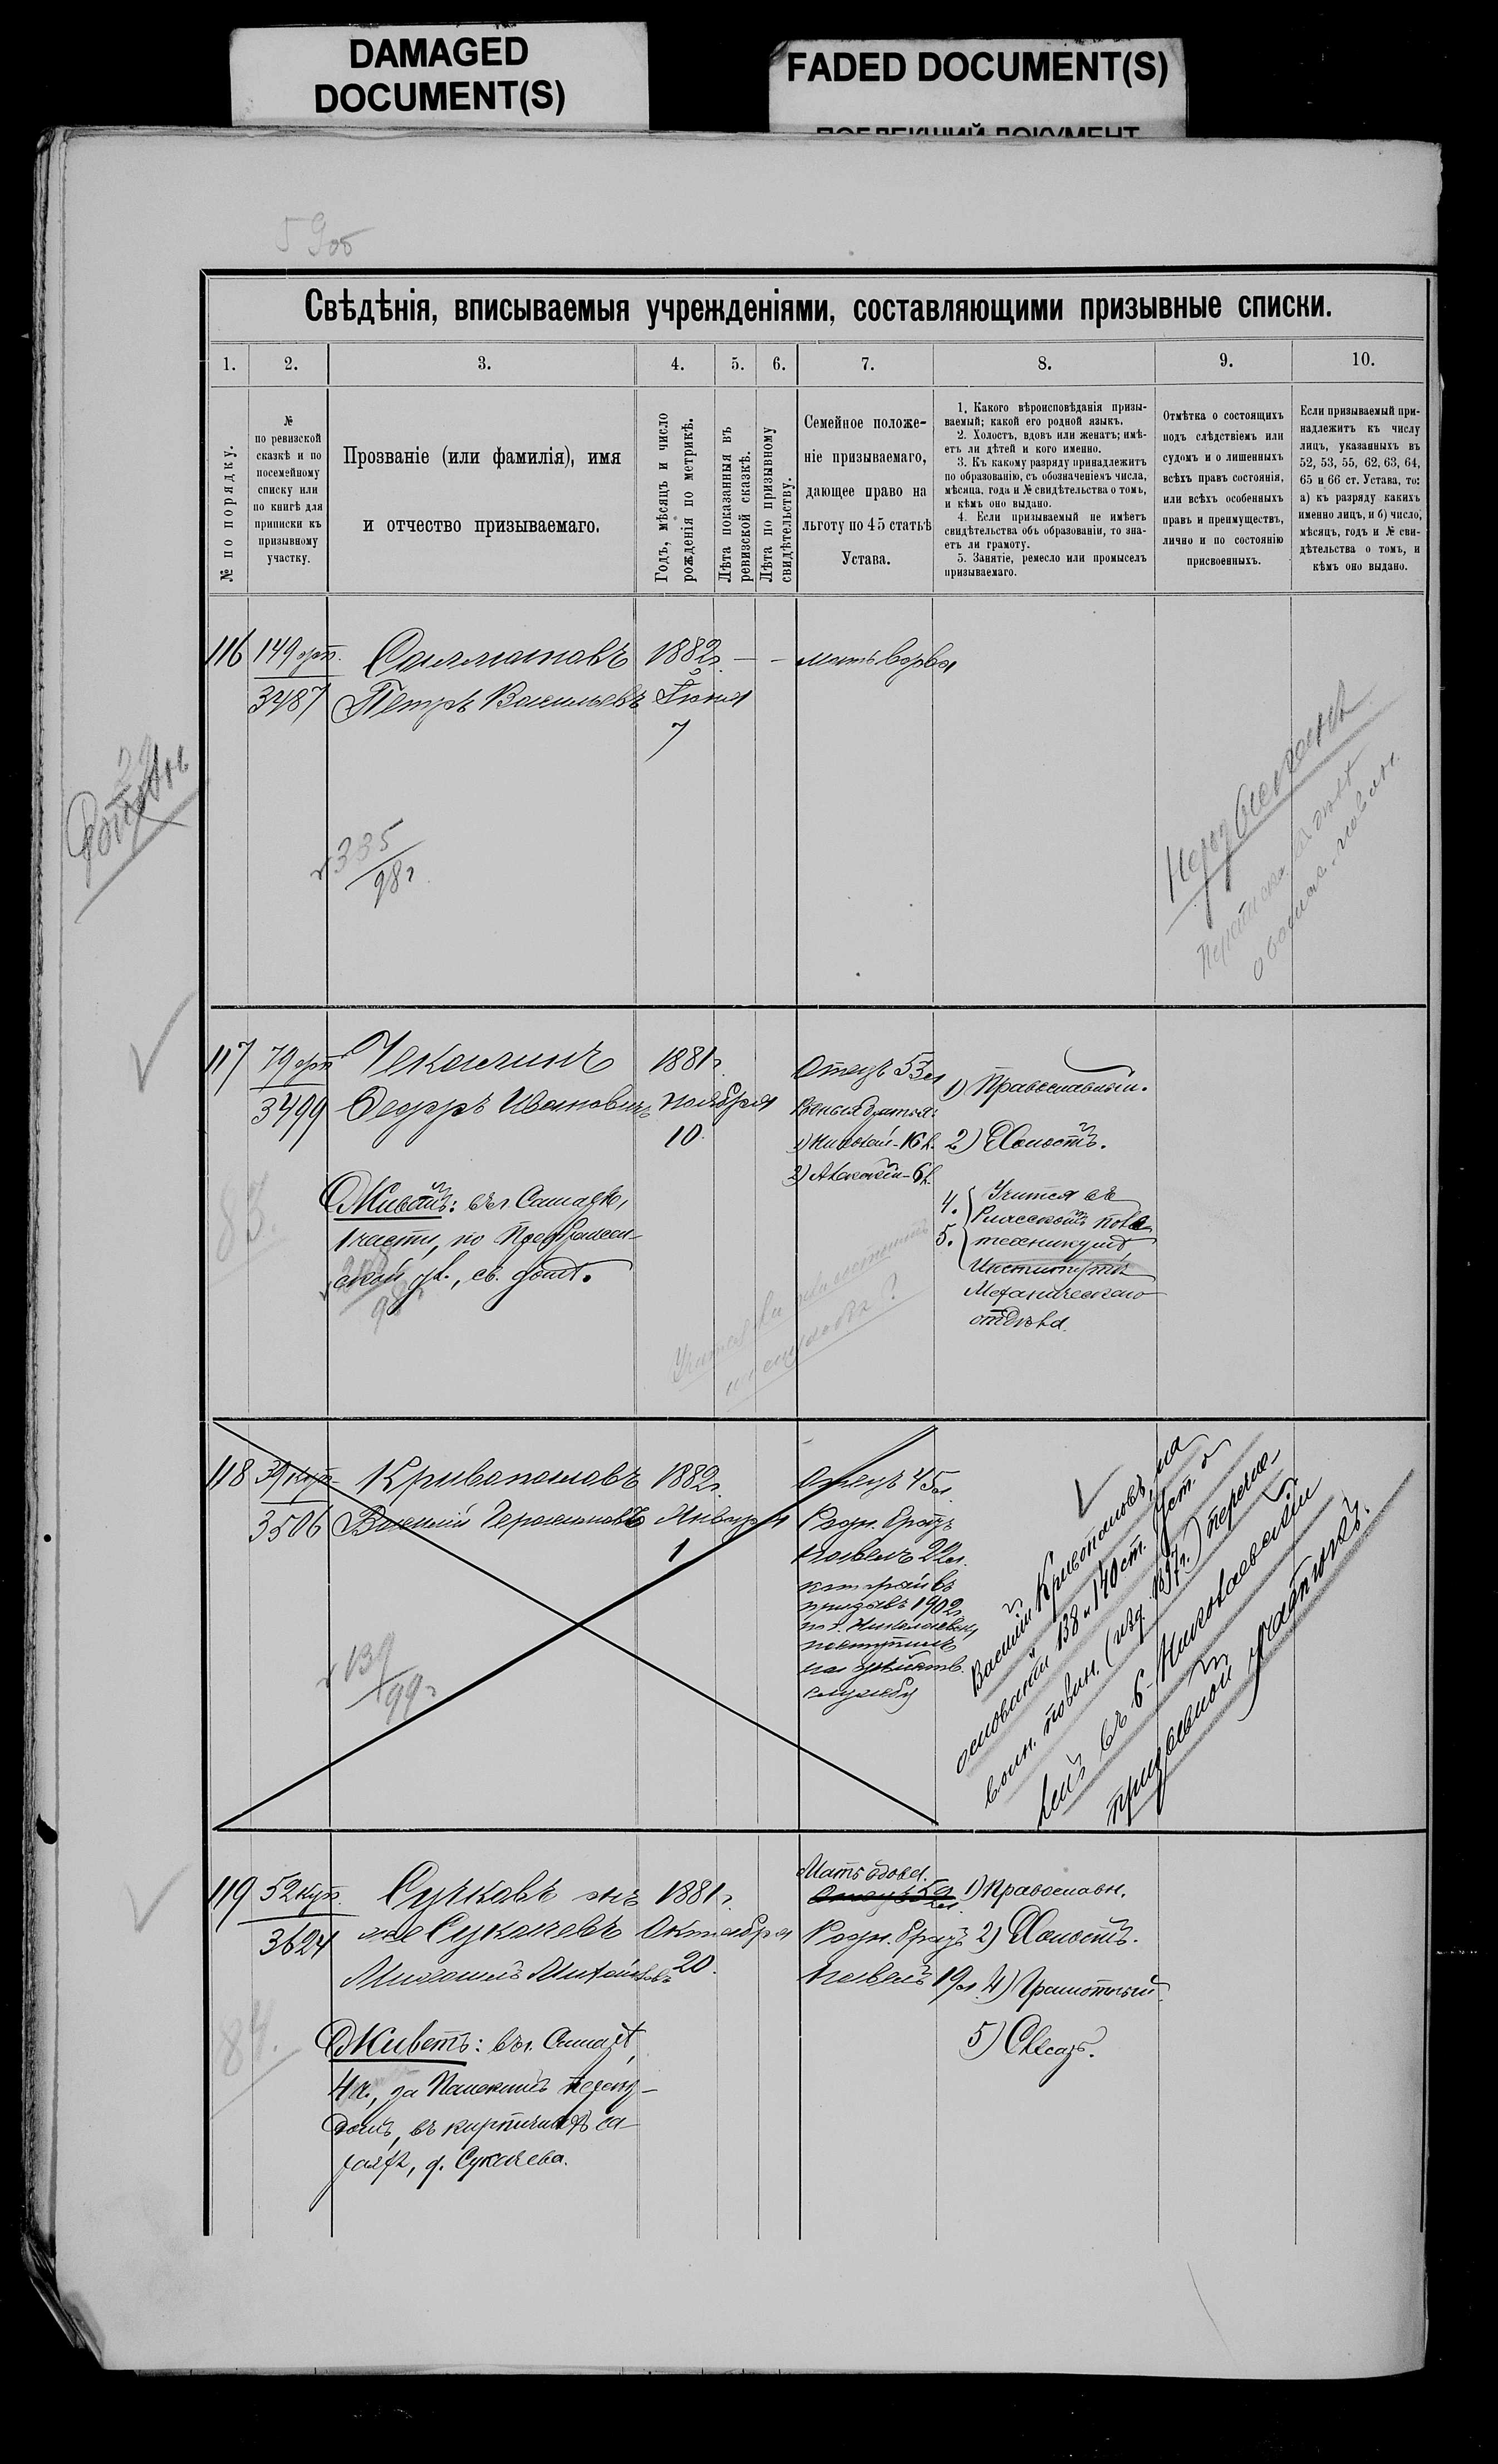 DAMAGED
DOCUMENT(S)
FADED DOCUMENT(S)
ПОБЛЕКШИЙ ДОКУМЕНТ
Свѣдѣнія, вписываемыя учрежденіями, составляющими призывные списки.
1.
№ по порядку.
2.
№
по ревизской
сказкѣ и по
посемейному
списку или
по книгѣ для
приписки къ
призывному
участку.
3.
Прозваніе (или фамилія), имя
и отчество призываемаго.
4.
Годъ, мѣсяцъ и число
рожденія по метрикѣ.
5.
Лѣта показанныя въ
ревизской сказкѣ.
6.
Лѣта по призывному
свидѣтельству.
7.
Семейное положе-
ніе призываемаго,
дающее право на
льготу по 45 статьѣ
Устава.
8.
1. Какого вѣроисповѣданія призы-
ваемый; какой его родной языкъ.
2. Холостъ, вдовъ или женатъ; имѣ-
етъ ли дѣтей и кого именно.
3. Къ какому разряду принадлежитъ
по образованію, съ обозначеніемъ числа,
мѣсяца, года и № свидѣтельства о томъ,
и кѣмъ оно выдано.
4. Если призываемый не имѣетъ
свидѣтельства объ образованіи, то зна-
етъ ли грамоту.
5. Занятіе, ремесло или промыселъ
призываемаго.
9.
Отмѣтка о состоящихъ
подъ слѣдствіемъ или
судомъ и о лишенныхъ
всѣхъ правъ состоянія,
или всѣхъ особенныхъ
правъ и преимуществъ,
лично и по состоянію
присвоенныхъ.
10.
Если призываемый при-
надлежитъ къ числу
лицъ, указанныхъ въ
52, 53, 55, 62, 63, 64,
65 и 66 ст. Устава, то:
а) къ разряду какихъ
именно лицъ, и б) число,
мѣсяцъ, годъ и № сви-
дѣтельства о томъ, и
кѣмъ оно выдано.
116
149
3487
Петръ Васильевъ
1882г.
Іюня
7
мать вдова
335
98г.
117
79
3499
Чекалинъ
Федоръ Ивановичъ
1881г.
ноября
10.
Отецъ 53л
1) Николай-16 л.
2) Алексѣй-6 л.
1) Православный.
2) Холостъ.
4.
5.
Учится въ
техникумѣ
Институтѣ
Механическаго
отдѣла.
Живетъ: въ г. Самарѣ,
1 части, по Преображен-
ской ул., св. домъ.
83.
118
39
3506
Кривопаловъ
Василій
1882г.
Января
1
Отецъ 45л.
Родн. братъ
22л.
который въ
призывъ 1902г.
поступилъ
на дѣйств.
службу
139
99г.
Василій Кривопаловъ, на
основаніи 138 и 140 ст. Уст. о
воин. повин. (изд. 1897г.) перечис-
ленъ въ 6-Николаевскій
призывной участокъ.
119
52 куп.
3624
Сучковъ онъ
же Сукачевъ
20.
1881г.
Октября
Мать вдова.
Родн. братъ
19л
1) Православн.
2) Холостъ.
4) Грамотный.
5) Слесарь.
Живетъ: въ г. Самарѣ,
4 ч., за
въ кирпичныхъ са-
раяхъ, д. Сукачева.
84.